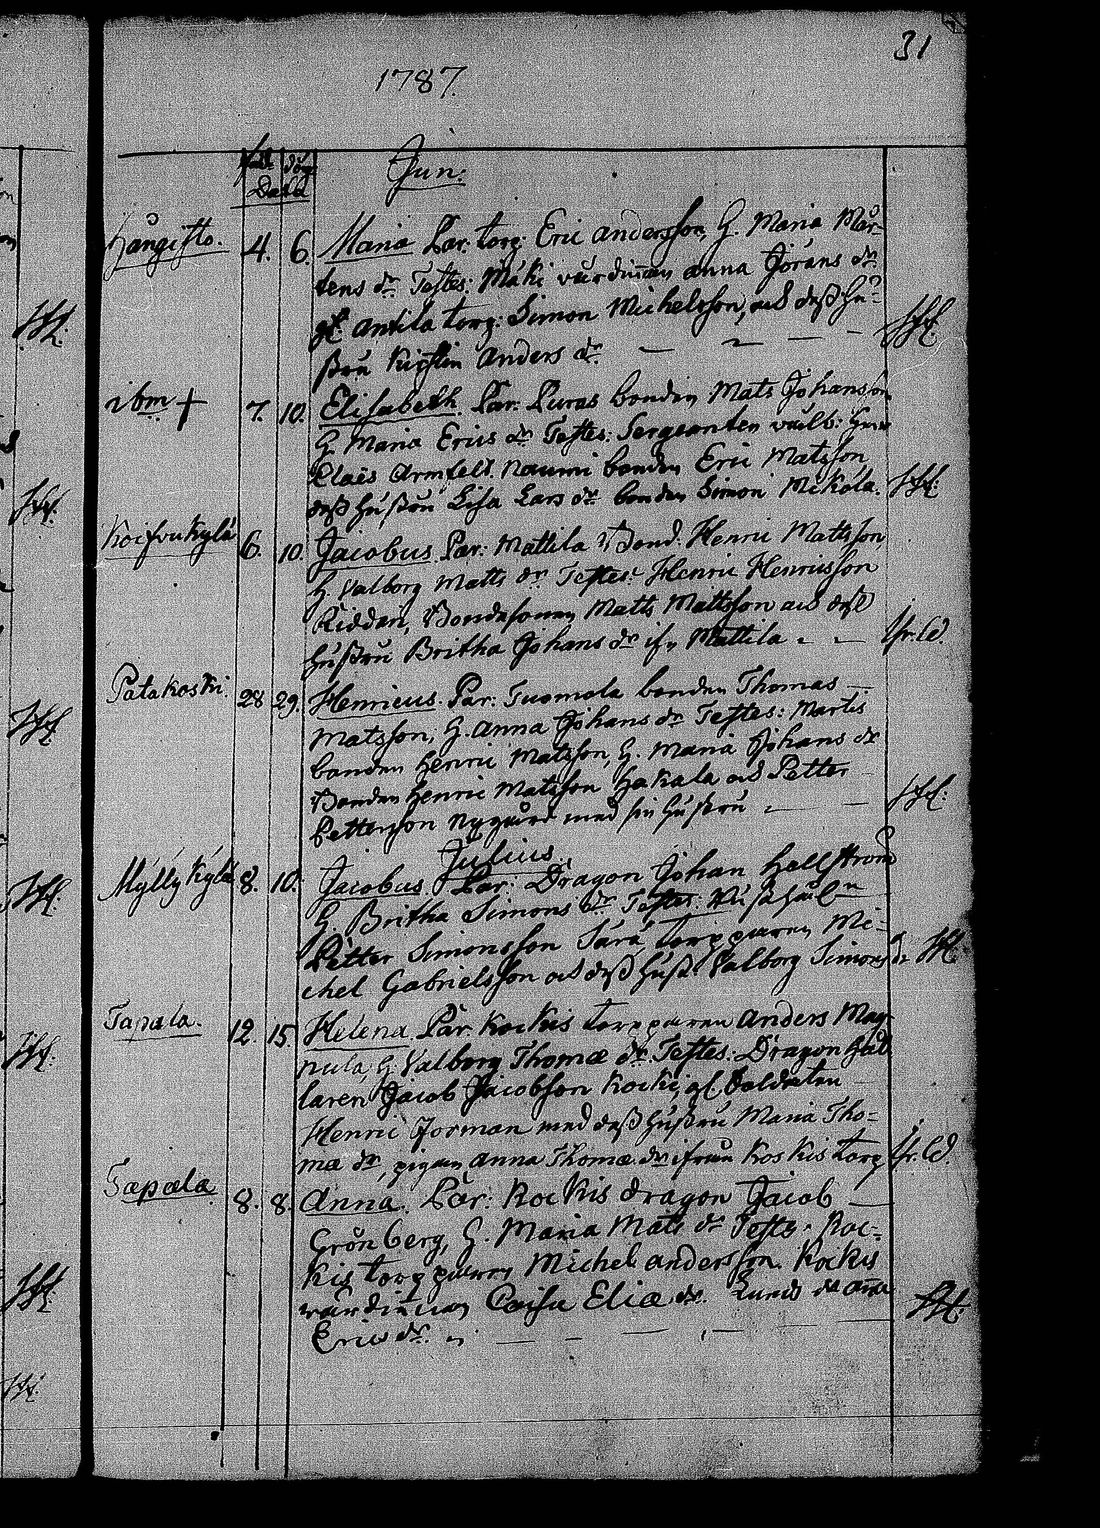 31
1787.
Jun:
Dat
Hångisto. 4. 6. Maria Par. torp: Eric andersson, G. Maria Mår-
tens dr. Testes: Mäki värdinnan anna Jörans dr.
gl. antila torp: Simon Michelsson, aes dess hu-
stru Kirstin anders dr.
ibm + 7. 10. Elisabeth. Par. Puras bonden Mats Johansson
G. Maria Erics dr Testes: Sergeanten välb: Herr
Claës Armfelt. Naumi bonden Eric Matsson
dess hustru Lisa Lars dr bonden Simon Mikola.
Koifvukylä 6. 10. Jacobus. Par: Mattila Bond. Henric Mattsson,
G. Valborg Matts dr Testes: Henric Henricsson
Ridden, Bondesonen Matts Mattsson aes dess
hustru Britha Johans dr ifr. Mattila
Patakoski. 28 29. Henricus. Par: Tuomola bonden Thomas
Matsson, G. anna Johans dr Testes: Martis
bonden Henric Matsson, G. Maria Johans dr
Bonden Henric Matsson Hakala aes Petter
Pettersson Nygård med sin hustru
Julius.
Mylly Kylä 8. 10. Jacobus Par: Dragon Johan Hallstrom
G. Britha Simons dr Testes:
Petter Simonsson Särä, torpparen Mi-
chel Gabrielsson aes dess hust: Valborg Simons dr
Tapala. 12. 15. Helena. Par. Kockis torpparen Anders Mag-
nula, G. Valborg Thomæ dr. Testes. Dragon hål-
laren Jacob Jacobsson Kocki, gl. Soldaten
Henric Forman med dess hustru Maria Tho-
mæ dr, pigan anna Thomæ dr ifrån Koskis torp
Tapala 8. 8. Anna. Par: Kockis dragon Jacob
Grönberg, G. Maria Mats dr Testes: Koc-
kis torpparen Michel andersson. Kockis
värdinnan Caisa Eliæ dr.
Erics dr.